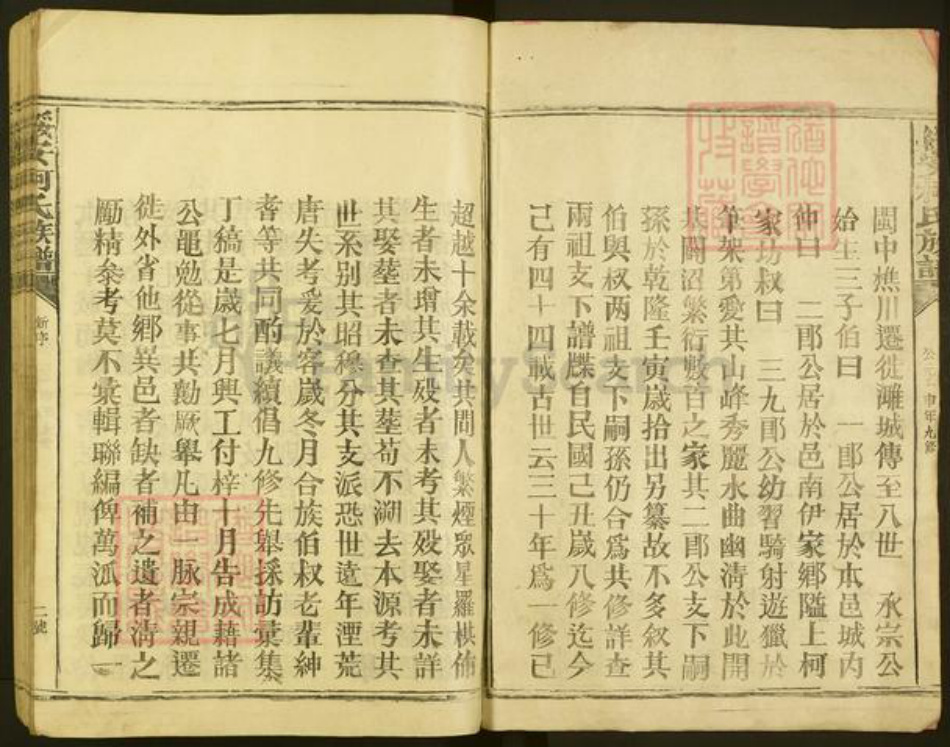 閩中樵川遷徙濉城傳至八世 承宗公
始生三子伯曰 一郎公居於本邑城内
仲曰 二郎公居於邑南伊家鄉隘上柯
家坊叔曰 三九郎公幼習騎射遊獵於
筆架第愛其山峰秀麗水曲幽清於此開
其闢沼繁衍數百之家其二郎公支下嗣
孫於乾隆壬寅歲拾出另纂故不多叙其
伯與叔两祖支下嗣孫仍合爲共修詳查
兩祖支下譜牒自民國己丑歲八修迄今
己有四十四載古世云三十年爲一修已
超越十余載矣其間人繁煙眾星羅棋佈
生者未增其生殁者未考其殁娶者未詳
其娶塟者未查其塟苟不溯去本源考其
世系别其昭穆分其支派恐世遠年湮荒
唐失考爰於客歲冬月合族伯叔老輩紳
耆等共同酌議續倡九修先舉採訪彙集
丁稿是歲七月興工付梓十月告成藉諸
公黽勉從事共勷厥舉凡由一脉宗親遷
徙外省他鄉異邑者缺者補之遺者淸之
勵精叅考莫不彙輯聯編俾萬派而歸一
綏安柯氏族譜
新序
二號